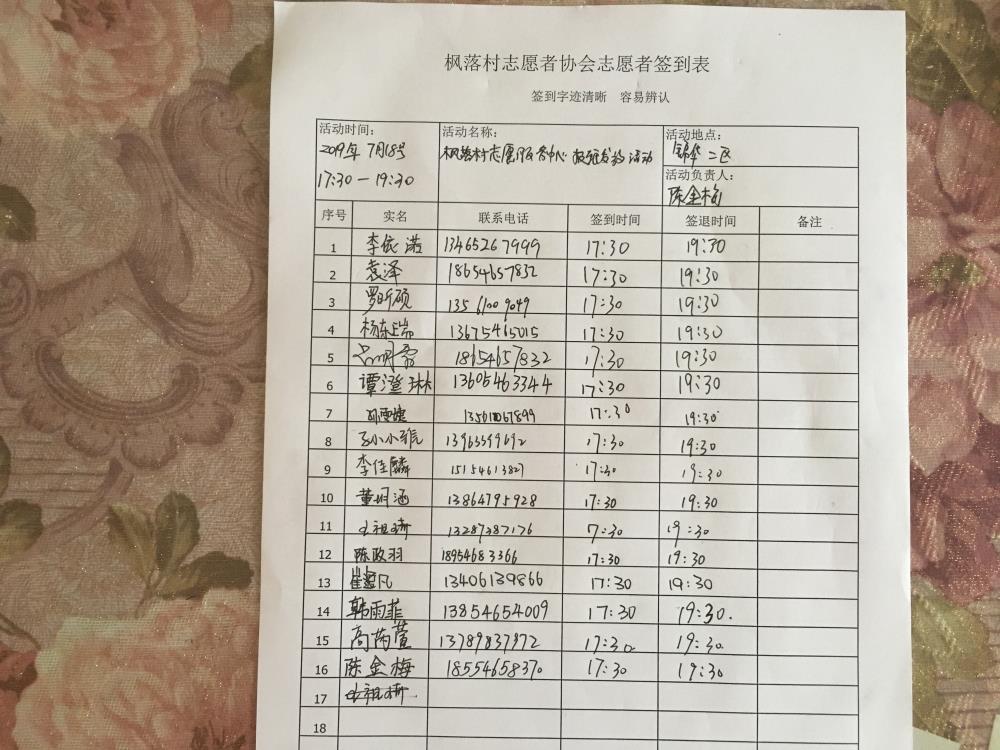 枫落村志愿者协会志愿者签到表
签到字迹清晰 容易辨认
活动时间: 活动名称: 活动地点:
2019年 7月18号 枫落村志愿服务中心 活动 锦华二区
17:30－19:30 活动负责人:
陈金梅
序号 实名 联系电话 签到时间 签退时间 备注
1 李依诺 13465267999 17:30 19:30
2 袁泽 18654657832 17:30 19:30
3 罗昕硕 13561009049 17:30 19:30
4 杨东瑞 13675465015 17:30 19:30
5 18654657832 17:30 19:30
6 谭滢琳 13605463344 17:30 19:30
7 17:30 19:30
8 13963399692 17:30 19:30
9 李佳麟 15154613827 17:30 19:30
10 13864795928 17:30 19:30
11 13287387176 7:30 19:30
12 陈政羽 18954683366 17:30 19:30
13 13406139866 17:30 19:30
14 韩雨菲 13854654009 17:30 19:30.
15 17:30 19:30
16 陈金梅 18554658370 17:30 19:30
17
18